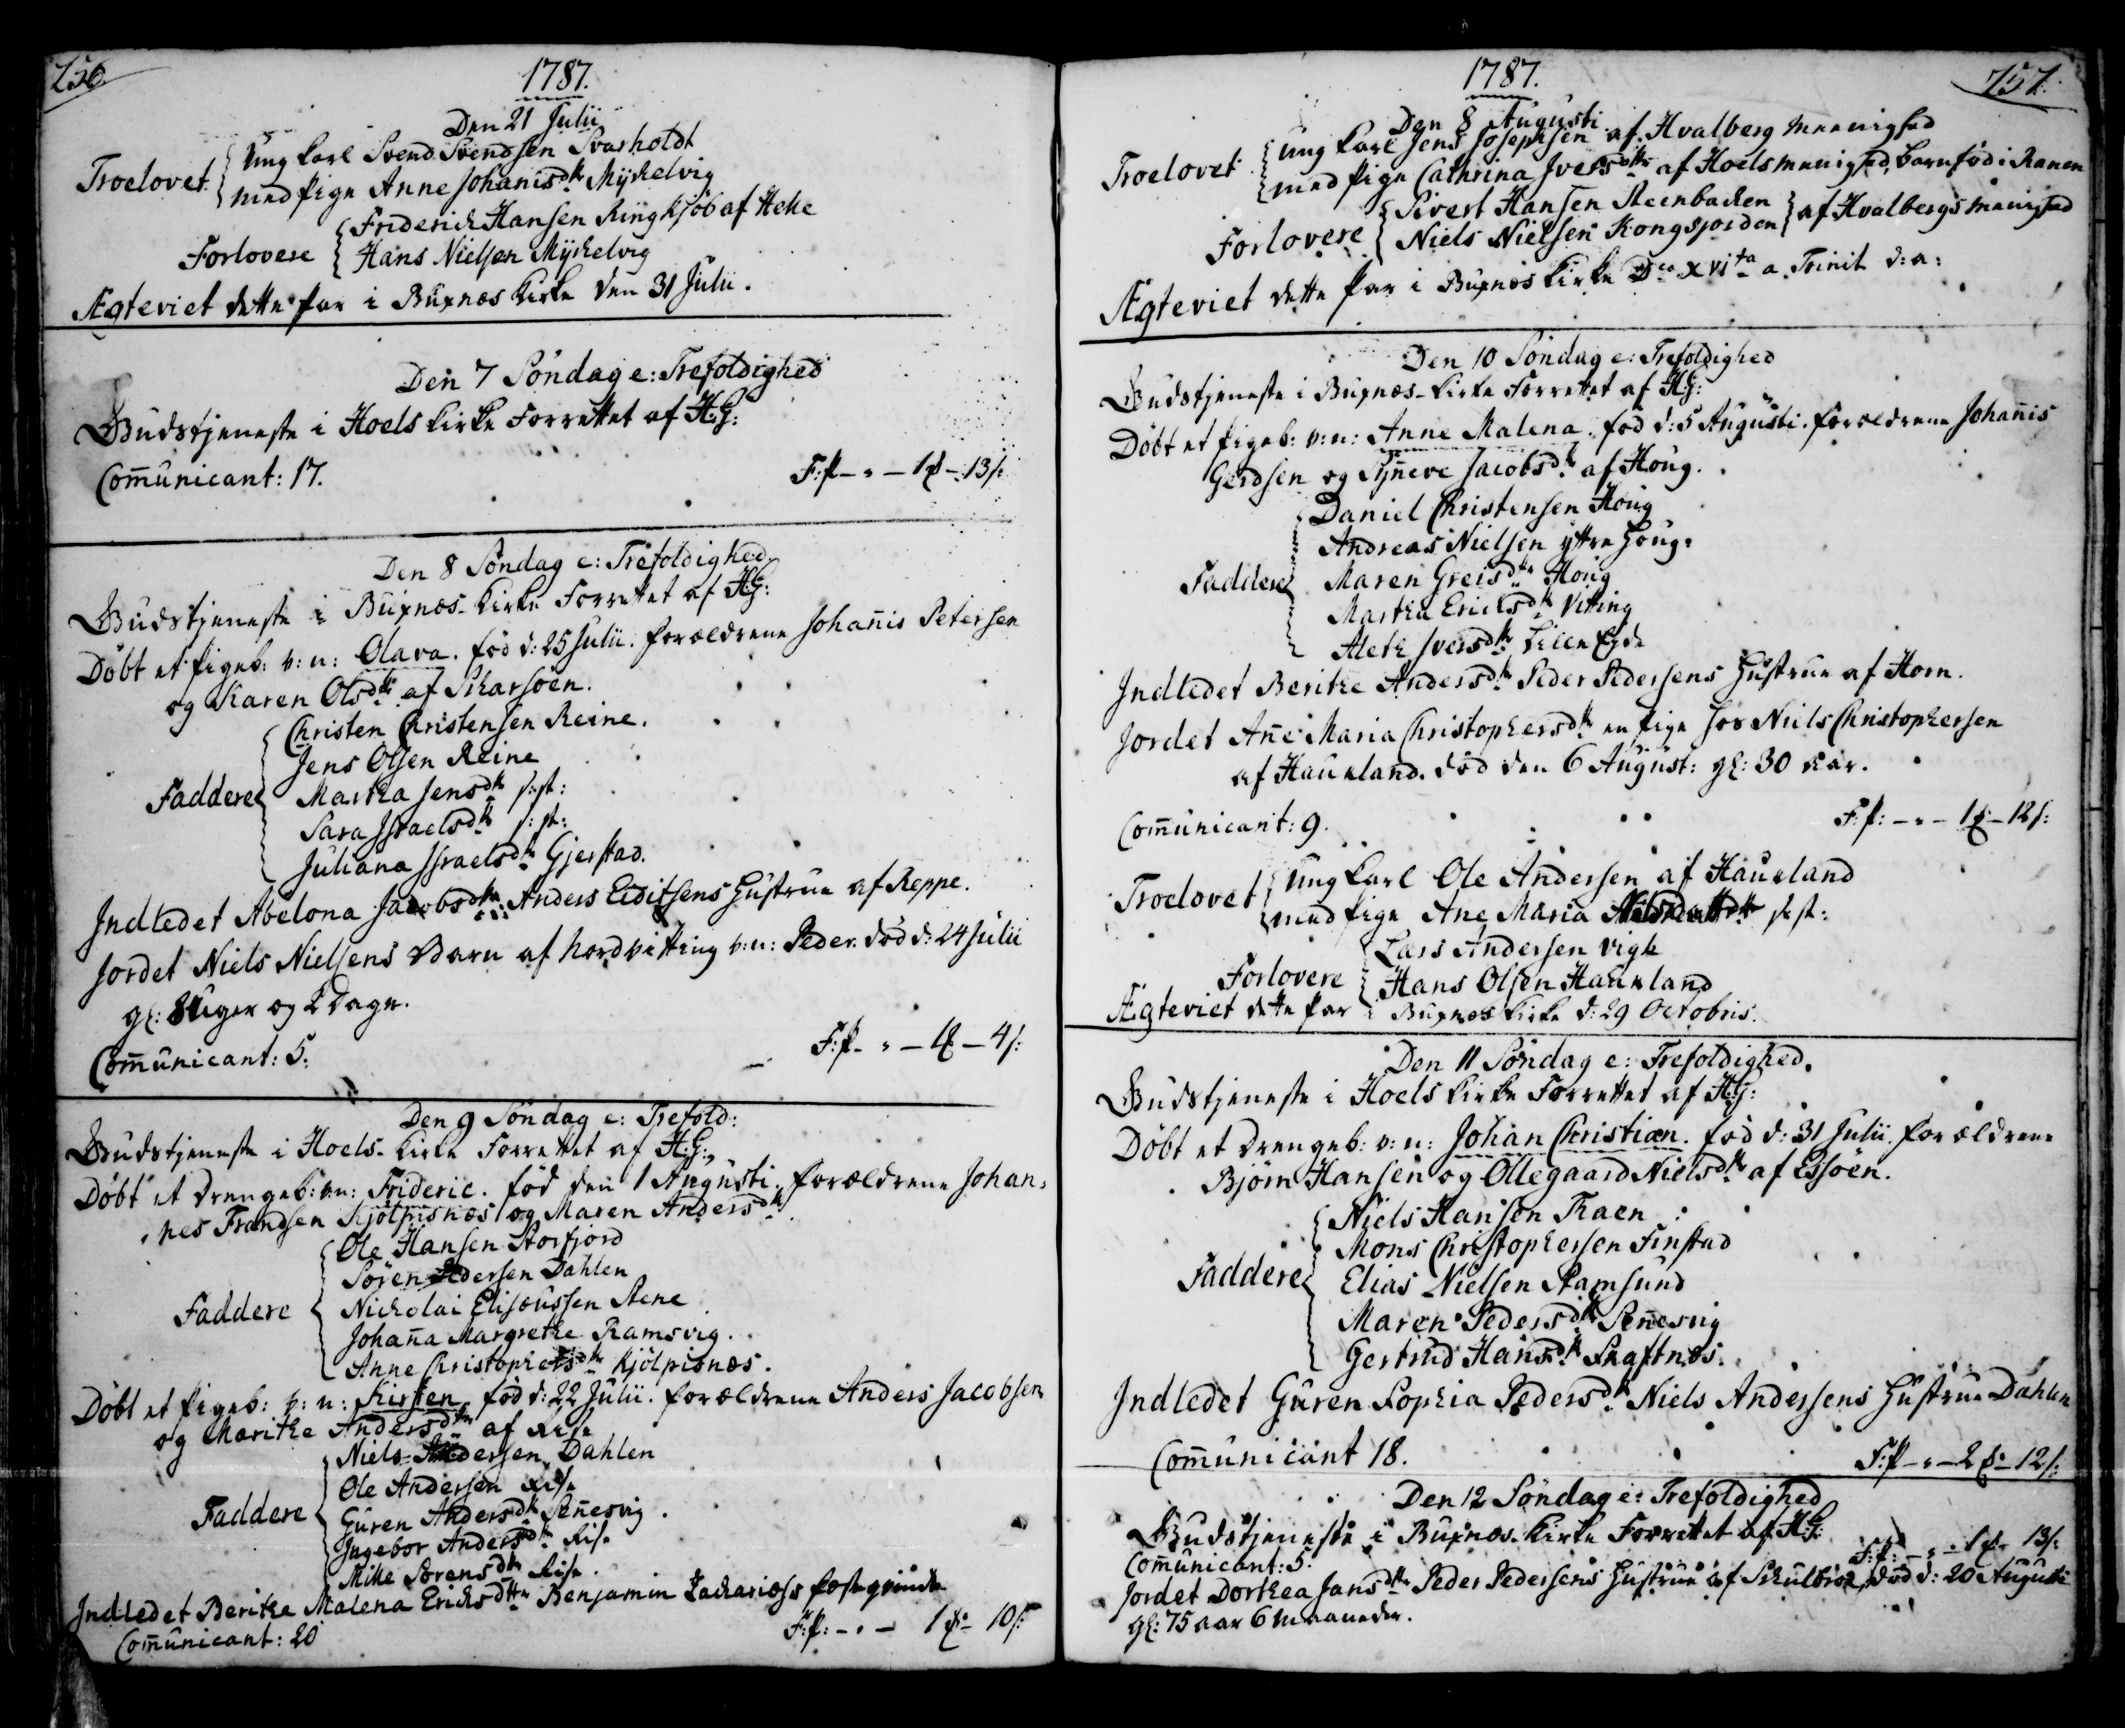 756.
1787.
Den 21 Julii
Troelovet
Ung karl Svend Svendsen Svarholdt
med pige Anne Johanisdtr Myhelvig
Forlovere
Friderich Hansen Ringkjøb af Helle
Hans Nielsen Myhelvig
Ægteviet dette par i Buxnæs kirke den 31 Julii.
Den 7 Søndag e: Trefoldighed
Gudstjeneste i Hoels kirke Forrettet af H:G:
Comunicant: 17.
F:P - " - 1 - 13 s:
Den 8 Søndag e: Trefoldighed
Gudstjeneste i Buxnæs kirke Forrettet af H:G:
Døbt et pigeb: v: n: Olava. fød d: 25 Julii. forældrene Johanis Petersen
og Karen Olsdtr af Skarsøen.
Faddere
Christen Christensen Reine.
Jens Olsen Reine
Martha Jensdtr s: st:
Sara Israelsdtr s: st:
Juliana Israelsdtr Gjerstad.
Indledet Abelona Jacobsdtr Anders Eiditsens Hustrue af Reppe.
Jordet Niels Nielsens Barn af Nordvitting v: n: Peder. død d: 24 Julii
gl: 8 Uger og 2 Dage.
Comunicant: 5.
F:P - " - 1 - 4 s:
Den 9 Søndag e: Trefold:
Gudstjeneste i Hoels kirke Forrettet af H:G:
Døbt et Drengeb: v: n: Frideric. fød den 1 Augusti. forældrene Johan,
nes Frandsen Kjølpisnæs og Maren Andersdtr
Faddere
Ole Hansen Storfjord
Søren Pedersen Dahlen
Nicholai Elisæussen Steene
Johaña Margrethe Ramsvig.
Anne Christophersdtr Kjølpisnæs.
Døbt et pigeb: v: n: Kirsten fød d: 22 Julii. forældrene Anders Jacobsen
og Marithe Andersdtr af Rise
Faddere
Niels Andersen Dahlen
Ole Andersen Rise
Guren Andersdtr Peñesvig.
Ingebor Andersdtr Rise
Mille Sørensdtr Rise.
Indledet Berithe Malena Ericksdtr Benjamin Zachariæss festeqvinde
Comunicant: 20
F:P: - " - 1 - 10 s:
757.
1787.
Den 8 Augusti
Troelovet
Ung karl Jens Josephsen af Hvalberg Meenighed
med pige Cathrina Iversdtr af Hoelsmenighed, barnfød i Ranen
Forlovere
Sivert Hansen Steenbacken
Niels Nielsen Kongsjorden
af Hvalbergs Menighed
Ægteviet dette par i Buxnæs kirke Dca XVIta a. Trinit d: a:
Den 10 Søndag e: Trefoldighed
Gudstjeneste i Buxnæs kirke Forrettet af H:G:
Døbt et pigeb: v: n: Anne Malena. fød d: 5 Augusti. forældrene Johañis
Gerdsen og Syñeve Jacobsdtr af Houg.
Faddere
Daniel Christensen Houg
Andreas Nielsen yttre Houg.
Maren Greisdtr Houg
Martha Ericksdtr Vitting
Aleth Iversdtr Lille Eyde
Indledet Berithe Andersdtr Peder Pedersens Hustrue af Horn.
Jordet Añe Maria Christophersdtr en pige hos Niels Christophersen
af Haukland. død den 6 August: gl: 30 aar.
Comunicant: 9.
F:P: - " - 1 - 12 s:
Troelovet
Ung karl Ole Andersen af Haukland
med pige Ane Maria Nielsdattr s: st:
Forlovere
Lars Andersen Vigh
Hans Olsen Haukland
Ægteviet dette par i Buxnæs kirke d: 29 Octobris.
Den 11 Søndag e: Trefoldighed.
Gudstjeneste i Hoels kirke Forrettet af H:G:
Døbt et Drengeb: v: n: Johan Christian. fød d: 31 Julii. forældrene
Bjørn Hansen og Ollegaard Nielsdtr af Essøen.
Faddere
Niels Hansen Traen
Mons Christophersen Finstad
Elias Nielsen Stamsund
Maren Pedersdtr Peñesvig
Gertrud Hansdtr Skaftnæs.
Indledet Guren Sophia Pedersdtr Niels Anderssens Hustrue Dahlen
Comunicant 18.
F:P - " - 2 - 12 s:
Den 12 Søndag e: Trefoldighed
Gudstjeneste i Buxnæs kirke Forrettet af H:G:
Comunicant: 5.
F:P: - " - 1 - 13 s:
Jordet Dorthea Jansdtr Peder Pedersens Hustrue af Schulbrue, død d: 20 Augusti
gl: 75 aar 6 maaneder.